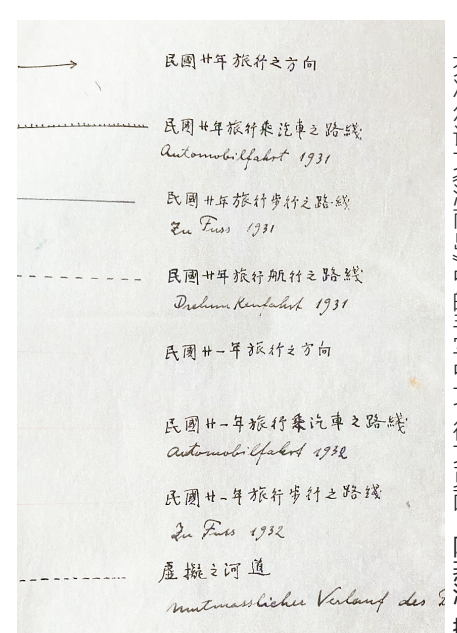 民國廿年旅行之方向
民國廿年旅行乘汽車之路綫
Automobilfahrt 1931
民國廿年旅行步行之路綫
Zu Fuss 1931
民國廿年旅行航行之路綫
1931
民國廿一年旅行之方向
民國廿一年旅行乘汽車之路綫
Automobilfahrt 1932
民國廿一年旅行步行之路綫
Zu Fuss 1932
虛擬之河道
Mutmasslicher Verlauf des